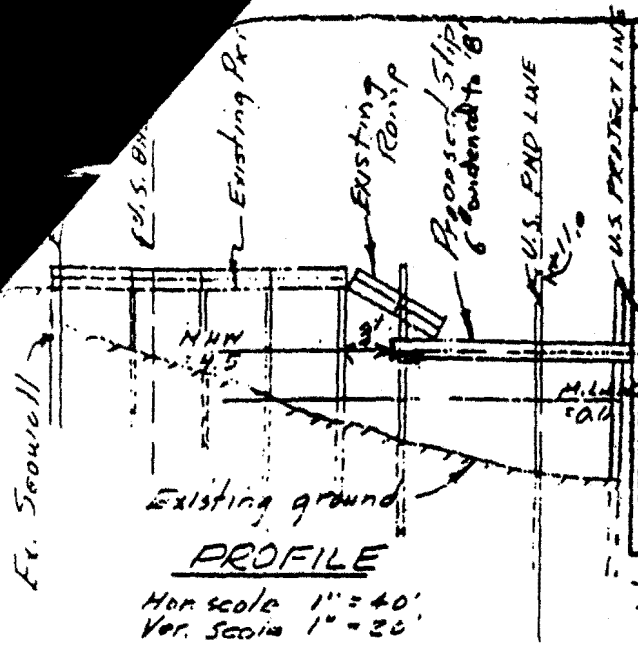 Existing
Existing
Ramp
Proposed Slip
6' widened to 18'
U.S. PHD LINE
U.S. PROJECT LINE
MHW
4.5
M.L.W.
= 0.0
Ex. Seawall
Existing ground
PROFILE
Hor. scale 1" = 40'
Ver. Scale 1" = 20'